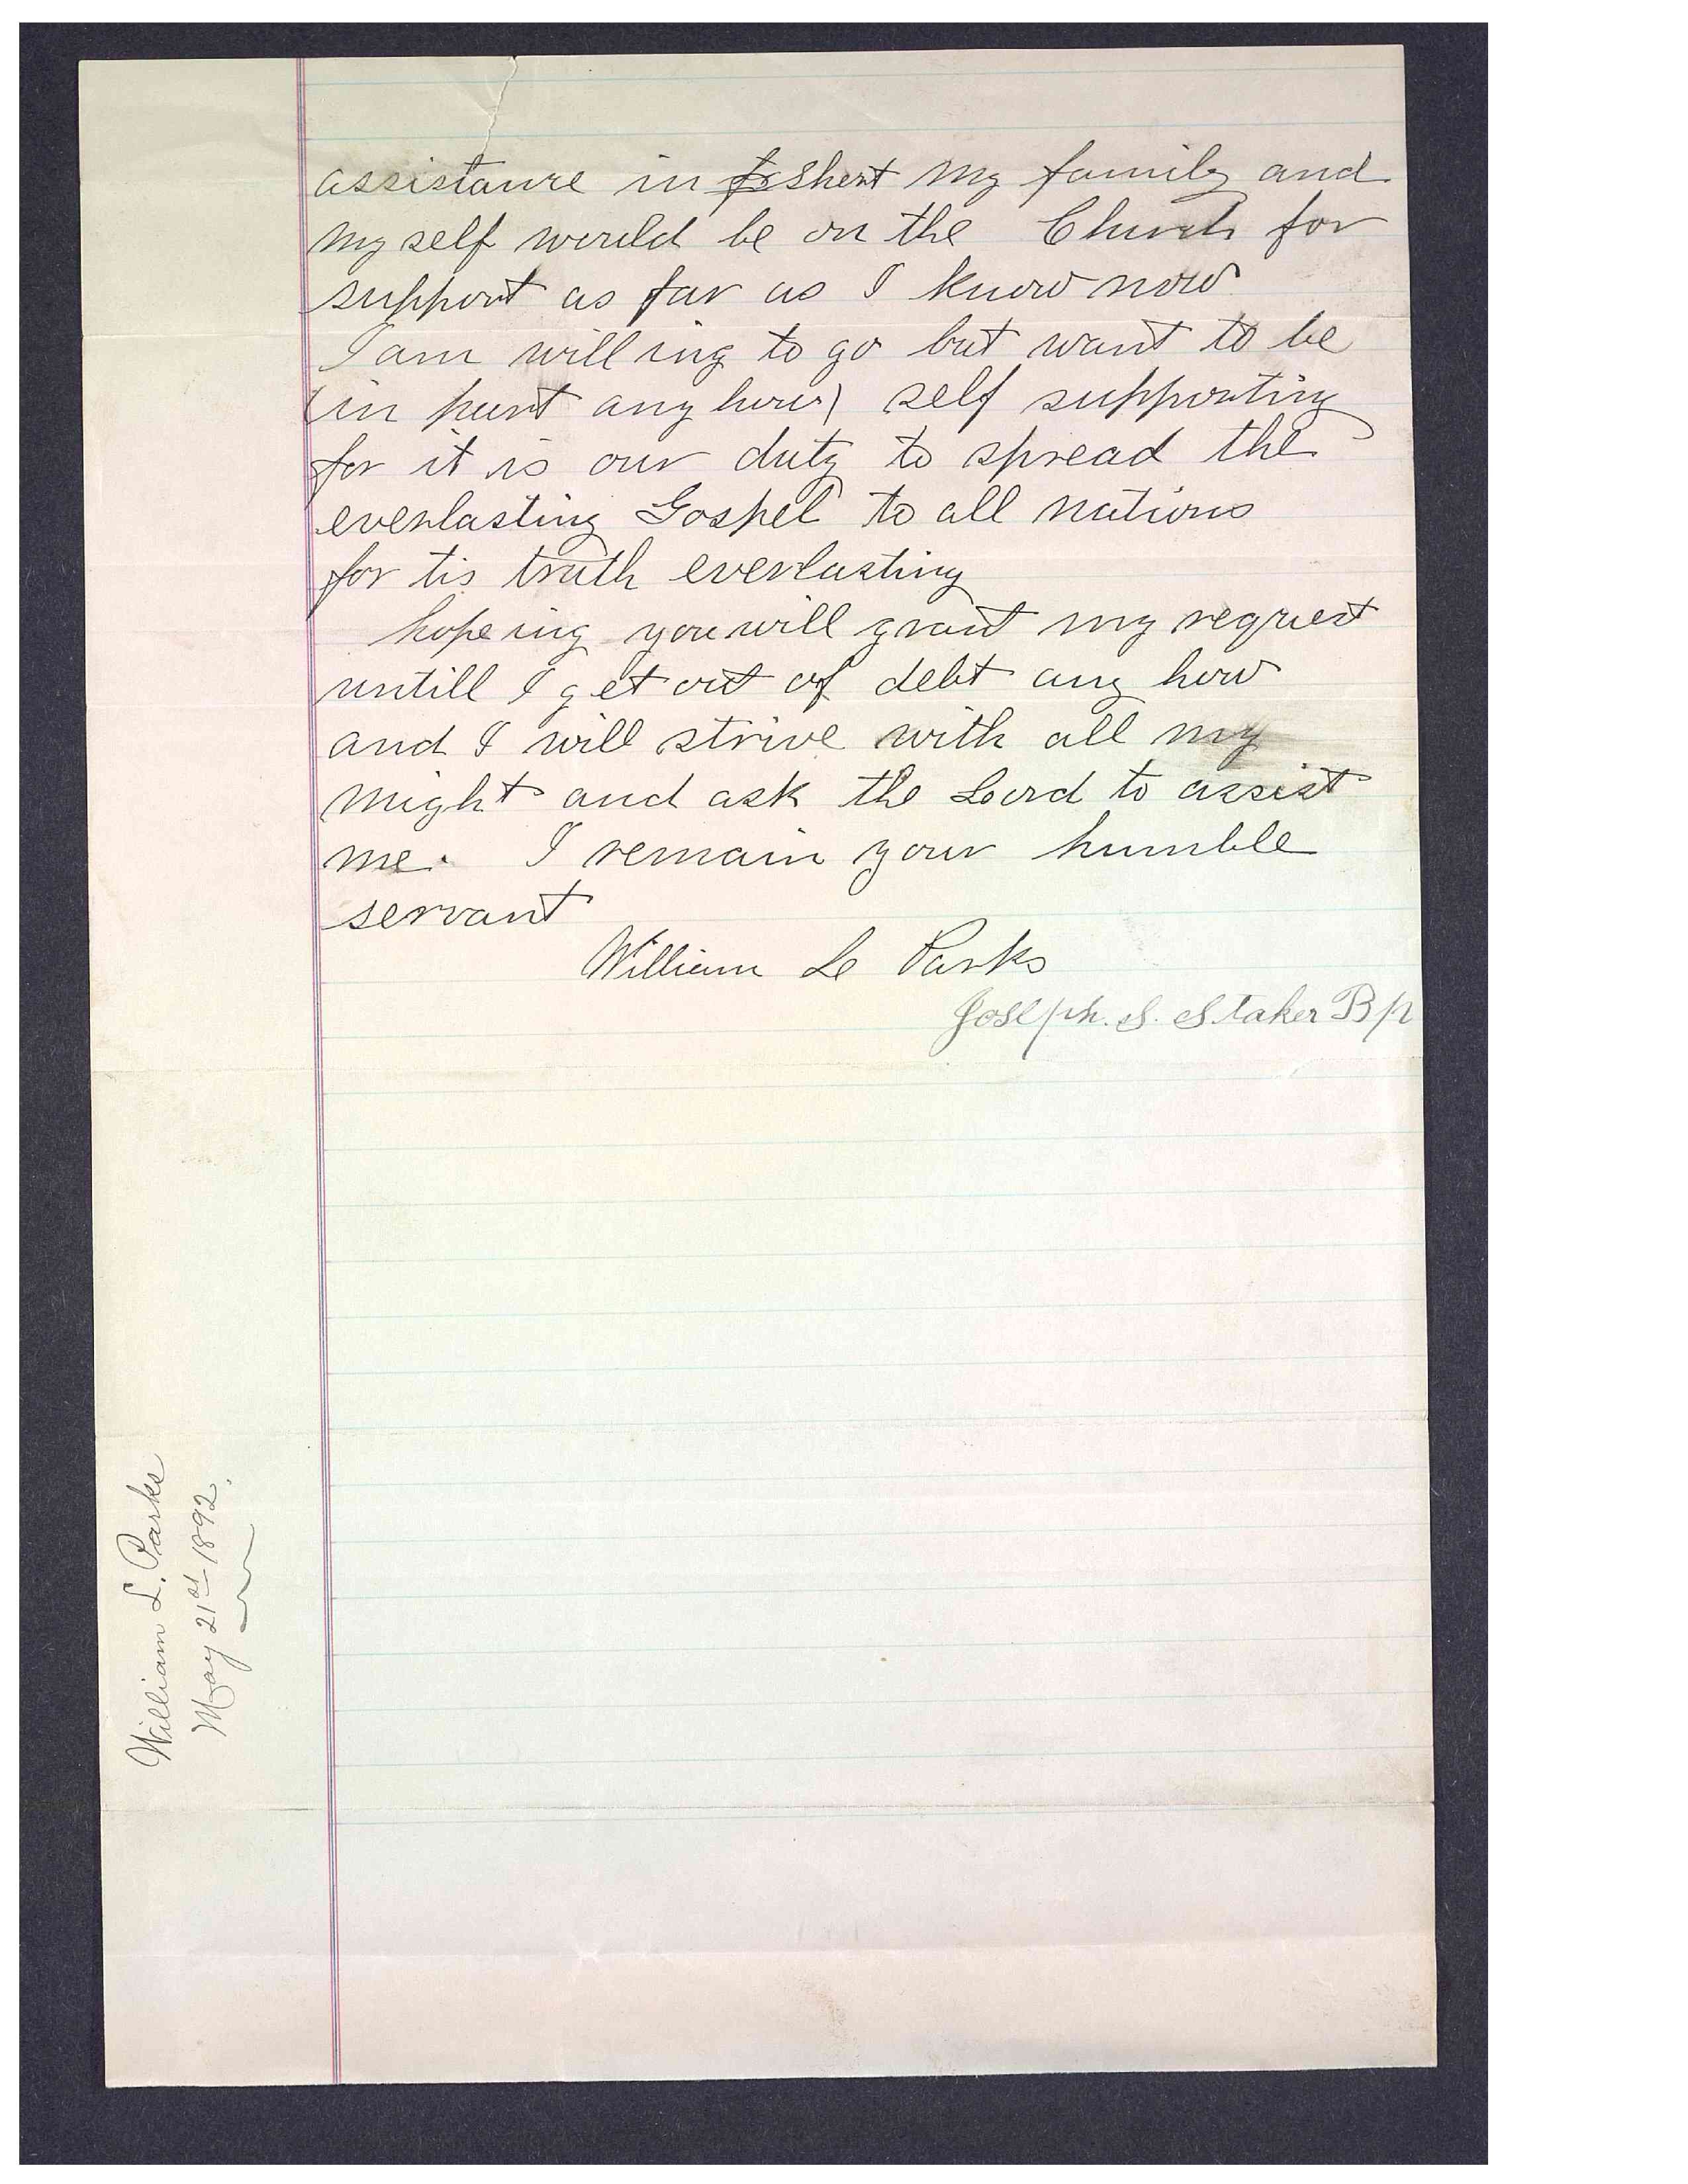 assistance in fo short my family and
my self would be on the Church for
support as far as I know now
I am willing to go but want to be
(in part any how) self supporting
for it is our duty to spread the
everlasting Gospel to all nations
for tis truth everlasting
hopeing you will grant my request
untill I get out of debt any how
and I will strive with all my
might and ask the Lord to assist
me. I remain your humble
servant
William Le Parks
Joseph. S. Staker Bp
William L. Parks
May 21st 1892.